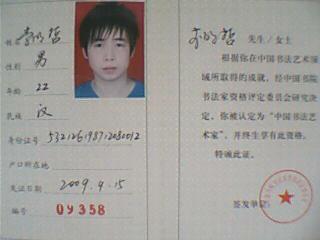 姓名 李 哲
性别 男
年龄 22
民族 汉
身份证号 532126198712080012
户口所在地
发证日期 2009.4.15
编号 09358
李 哲 先生/女士
根据你在中国书法艺术领
域所取得的成就，经中国书院
书法家资格评定委员会研究决
定，你被认定为“中国书法艺术
家”，并终生享有此资格。
特诚此证。
签发单位：